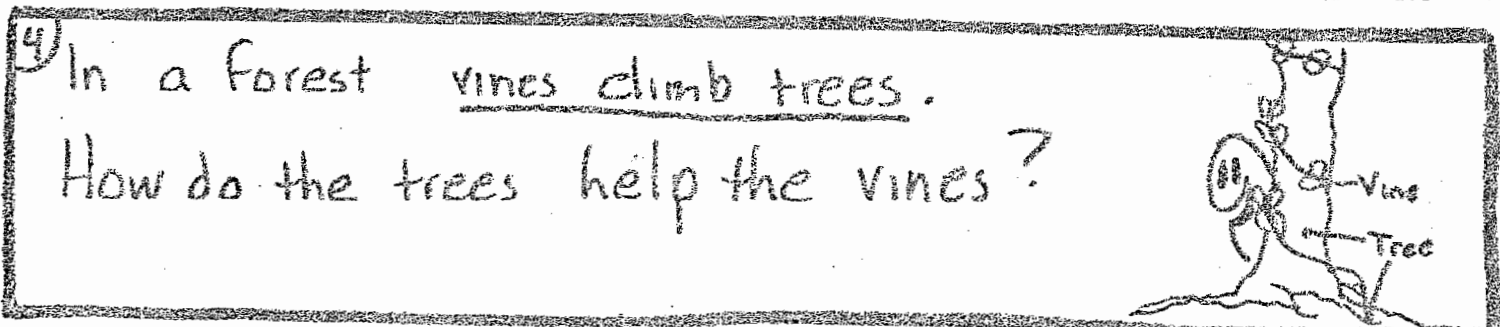 4) In a forest vines climb trees.
How do the trees help the vines?
Vine
Tree